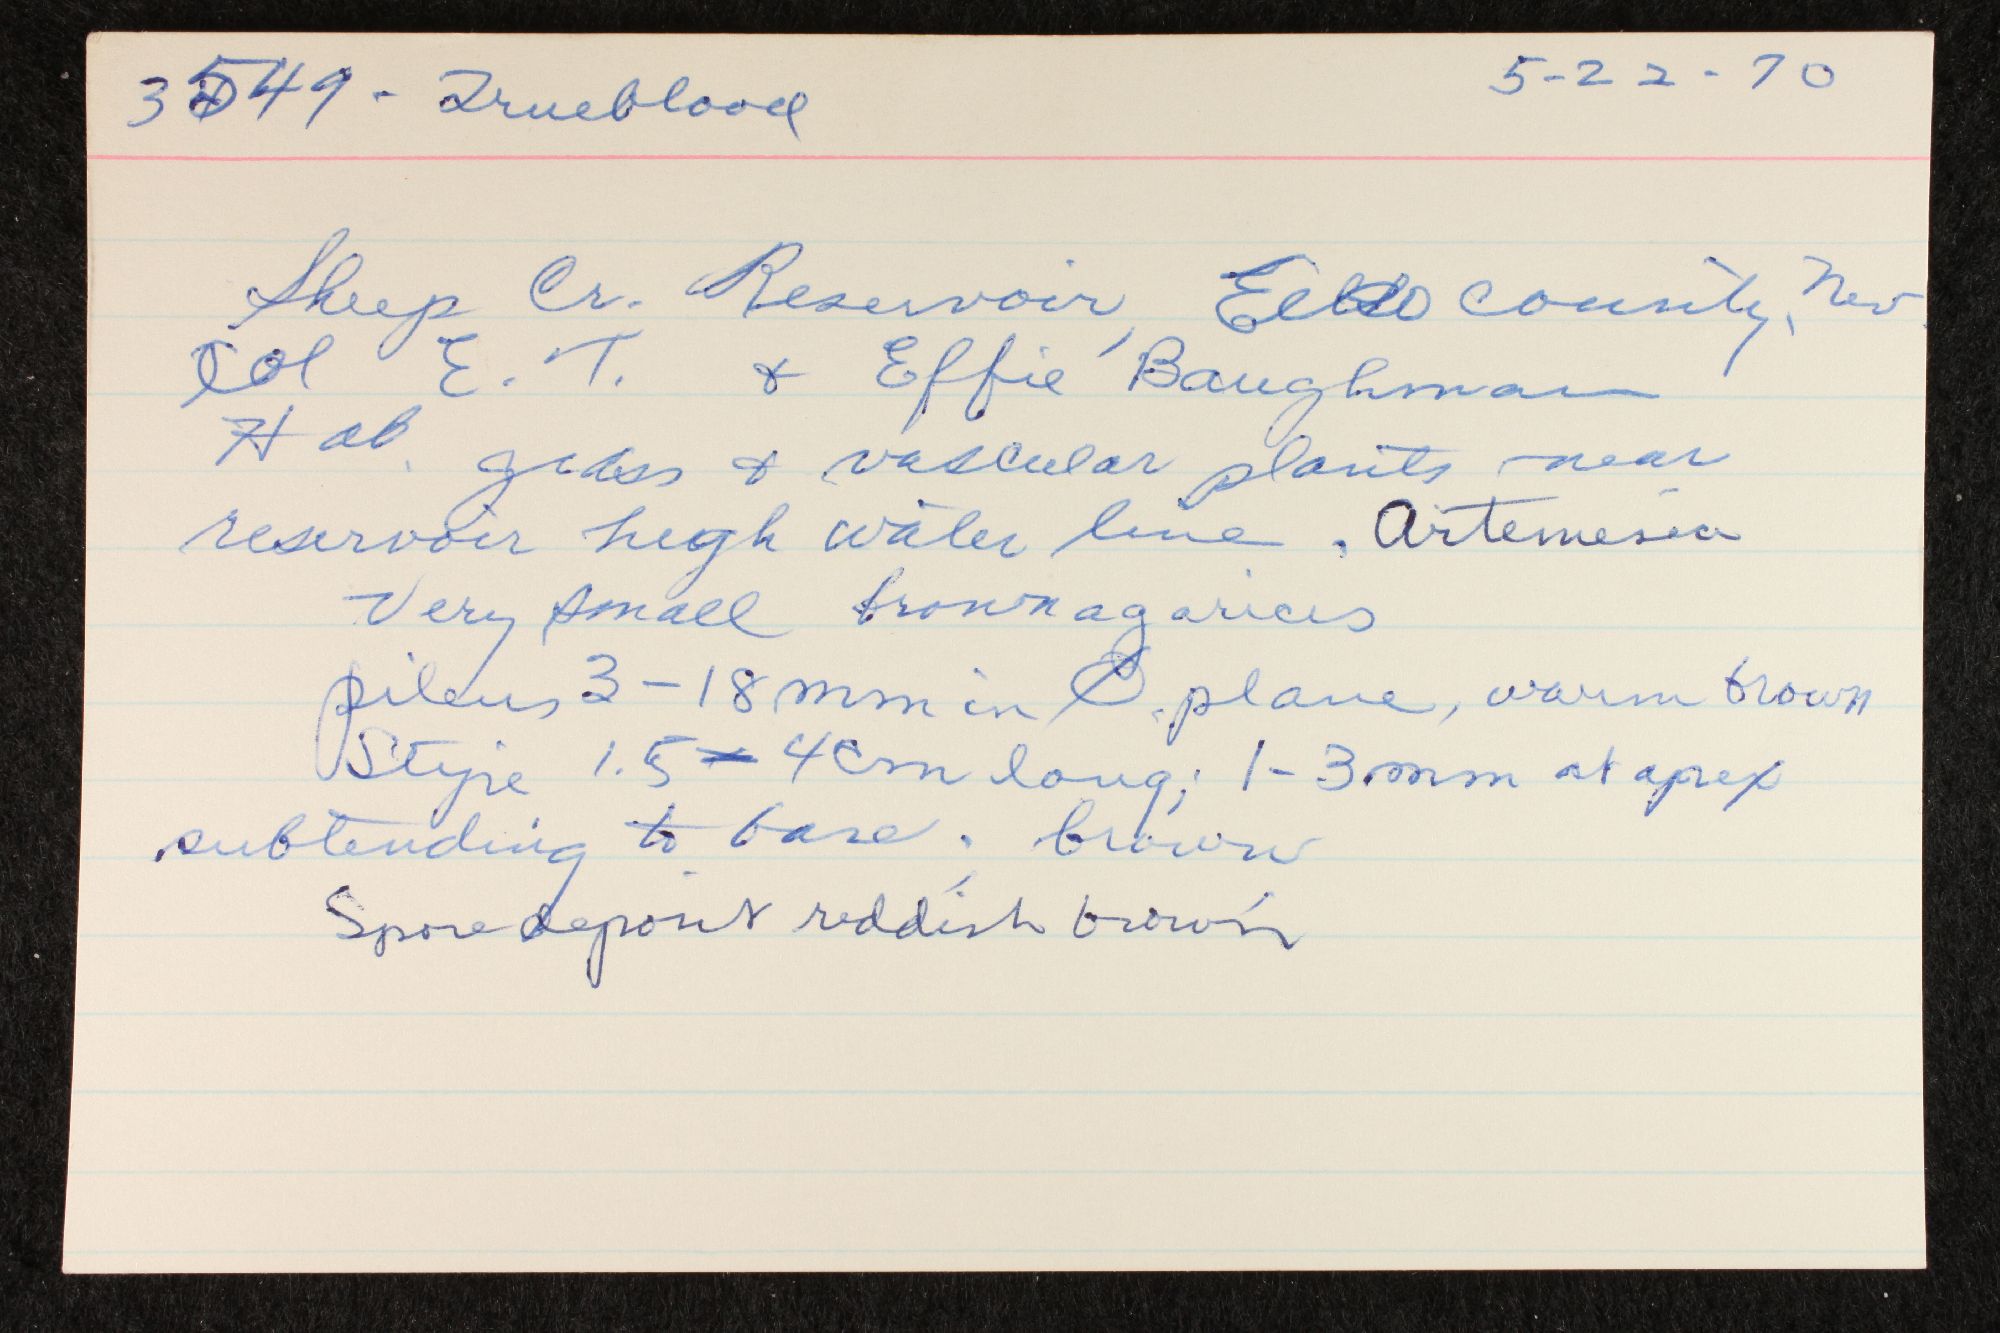 3549 - Trueblood 5-22-70
Sheep Cr. Reservoir, Elko County, Nev.
Col E. T. & Effie Baughman
Hab. grass & vascular plants near
reservoir high water line. Artemesia
Very small brown agarics
pileus 3-18 mm in D. plane, warm brown
Stipe 1.5-4 cm long; 1-3 mm at apex
subtending to base. brown
Spore deposit reddish brown